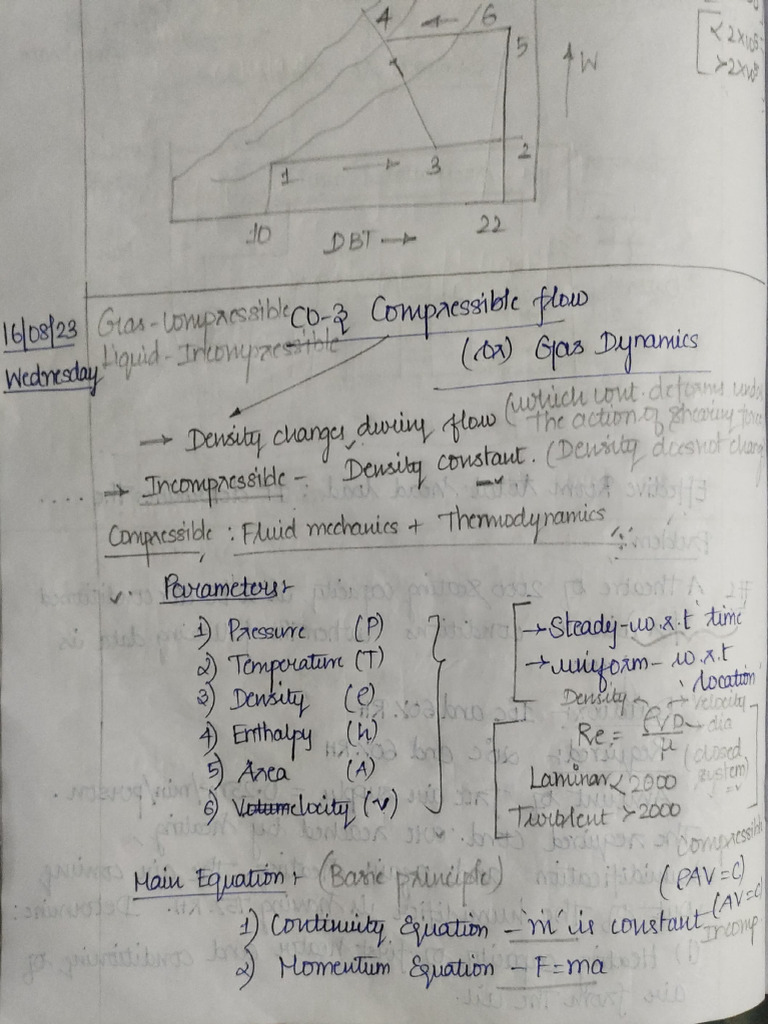 4 6
5
↑ W
< 2×10⁵
> 2×10⁵
1 → 3 2
10 DBT → 22
16/08/23
Wednesday
Gas-Compressible
Liquid-Incompressible
CO-3 Compressible flow
(or) Gas Dynamics
→ Density changes during flow (which cont. deforms under
the action of shearing force
→ Incompressible - Density constant. (Density does not change
Compressible : Fluid mechanics + Thermodynamics
✓ Parameters:-
1) Pressure (P)
2) Temperature (T)
3) Density (ρ)
4) Enthalpy (h)
5) Area (A)
6) Velocity (v)
→ Steady-w.r.t time
→ uniform- w.r.t
location
Density velocity
Re = ρVD/μ → dia
(closed
system)
Laminar < 2000
Turblent > 2000
Compressible
Main Equation:- (Basic principle) (ρAV=C)
1) Continuity Equation - ṁ is constant (AV=C)
Incomp
2) Momentum Equation - F=ma